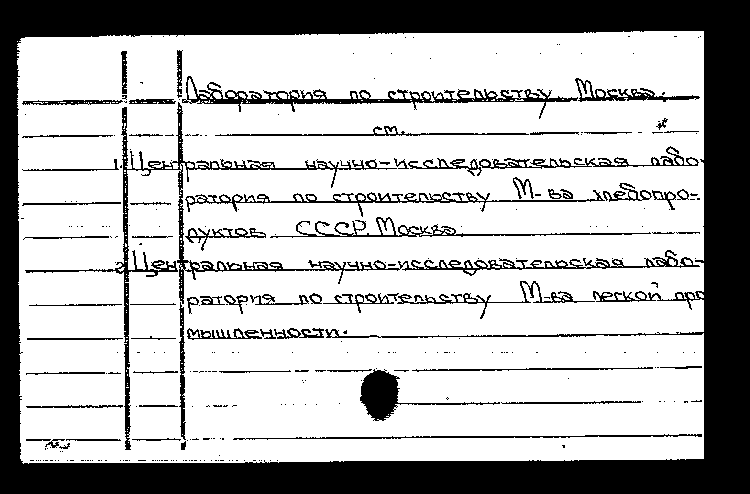 Лаборатория по строительству. Москва.
см.
1. Центральная научно-исследовательская лабо-
ратория по строительству М-ва хлебопро-
дуктов СССР. Москва.
2. Центральная научно-исследовательская лабо-
ратория по строительству М-ва легкой про
мышленности.